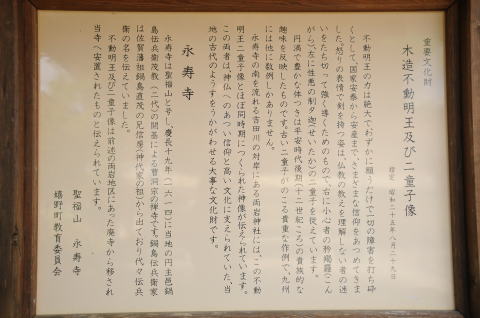 重要文化財
木造不動明王及び二童子像
指定 昭和二十五年八月二十九日
不動明王の力は絶大でおすがりに願うだけで一切の障害を打ち砕
くとして、国家安泰から安産まで、さまざまな信仰をあつめてきま
した。怒りの表情で剣を持つ姿は、仏教の教えを理解しない者の迷
いをたち切って強く導くためのもので、右に小心者の矜羯羅(こん
がら)、左に性悪の制夕迦(せいたか)の二童子を従えています。
円満で豊かな体つきは平安時代後期(十二世紀ごろ)の貴族的な
趣味を反映したものです。古い二童子がのこる貴重な作例で、九州
には他に数例しかありません。
永寿寺の南を流れる吉田川の対岸にある両岩神社には、この不動
明王二童子像とほぼ同時期につくられた神像が伝えられています。
この両者は、神仏へのあつい信仰と高い文化に支えられていた、当
地の古代のようすをうかがわせる大事な文化財です。
永寿寺
永寿寺は聖福山と号し、慶長十九年(一六一四)に当地の円主邑鍋
島伝兵衛家敬(二代)の開基による曹洞宗の禅寺です。鍋島伝兵衛家
は佐賀藩祖鍋島直茂の兄信房(神代家の祖)から出ており代々伝兵
衛の名を伝えていました。
不動明王及び二童子像は前述の両岩地区にあった廃寺から移され
当寺へ安置されたものと伝えられています。
聖福山 永寿寺
嬉野町教育委員会